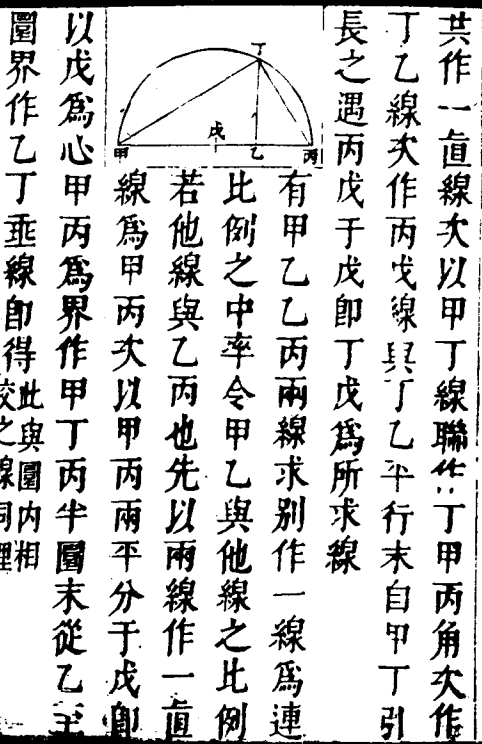 共作一直線次以甲丁線聯作丁甲丙角次作
丁乙線次作丙戊線與丁乙平行末自甲丁引
長之遇丙戊于戊卽丁戊爲所求線
丁
甲 戊 乙 丙
有甲乙乙丙兩線求别作一線爲連
比例之中率令甲乙與他線之比例
若他線與乙丙也先以兩線作一直
線爲甲丙次以甲丙兩平分于戊卽
以戊爲心甲丙爲界作甲丁丙半圜末從乙至
圜界作乙丁垂線卽得此與圜内相
交之線同理